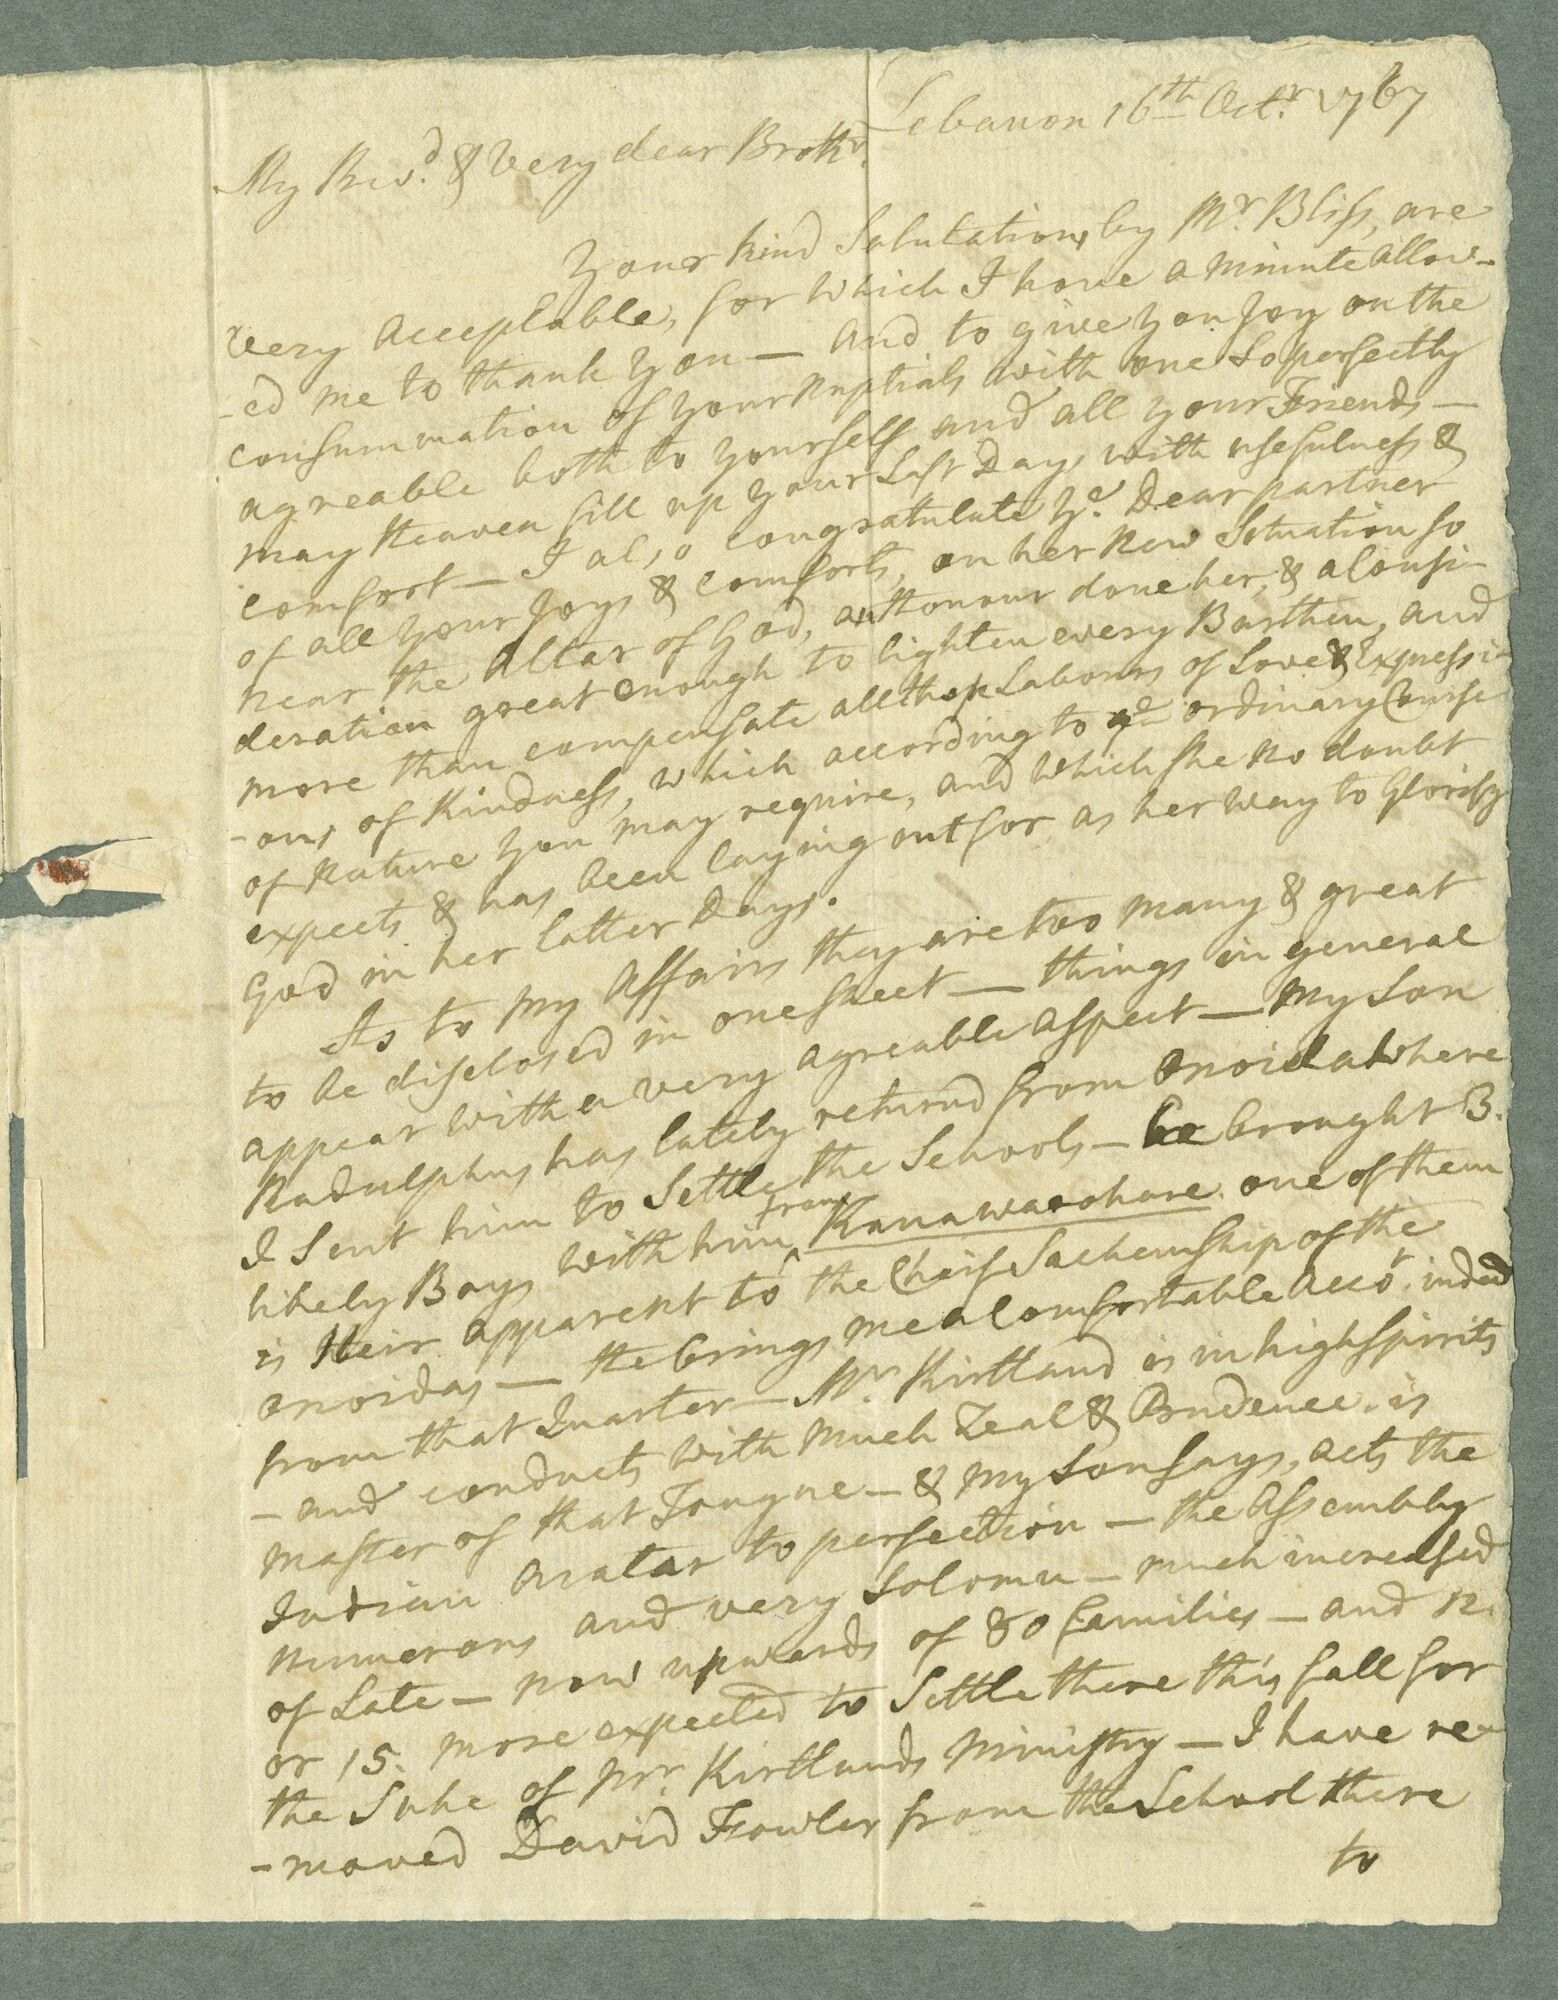 Lebanon 16th Octr. 1767
My Revd. & very dear Brothr.
Your kind Salutations, by Mr. Bliss, are
very acceptable, for which I have a minute allow-
-ed me to thank you — and to give you Joy on the
consummation of your nuptials with one so perfectly
agreable both to yourself and all your Friends —
may Heaven fill up your last Days with usefulness &
comfort — I also congratulate yr. Dear partner
of all your Joys & comforts, on her new Situation so
near the Altar of God, an Honour done her, & a consi-
deration great enough to lighten every Burthen, and
more than compensate all those Labours of Love & Expressi-
-ons of Kindness, which according to ye ordinary Course
of nature you may require, and which she no doubt
expects & has been laying out for as her way to Glorify
God in her latter Days.
As to my affairs they are too many & great
to be disclosed in one sheet — things in general
appear with a very agreable aspect — my Son
Radulphus has lately returnd from Onoida where
I Sent him to Settle the Schools — he brought 3.
likely Boys with him from Kanawarohare. one of them
is Heir apparent to the Chief Sachemship of the
onoidas — He brings me a Comfortable Acct. indeed
from that Quarter — Mr. Kirtland is in high Spirrits
- and conducts with much Zeal & Prudence. is
master of that Tongue — & my Son says, acts the
Indian orator to perfection — the Assembly
numerous and very Solomn — much increased
of Late — now upwards of 80 families — and 12.
or 15. more expected to Settle there this fall for
the Sake of Mr. Kirtlands ministry — I have re-
-moved David Fowler from the School there
to